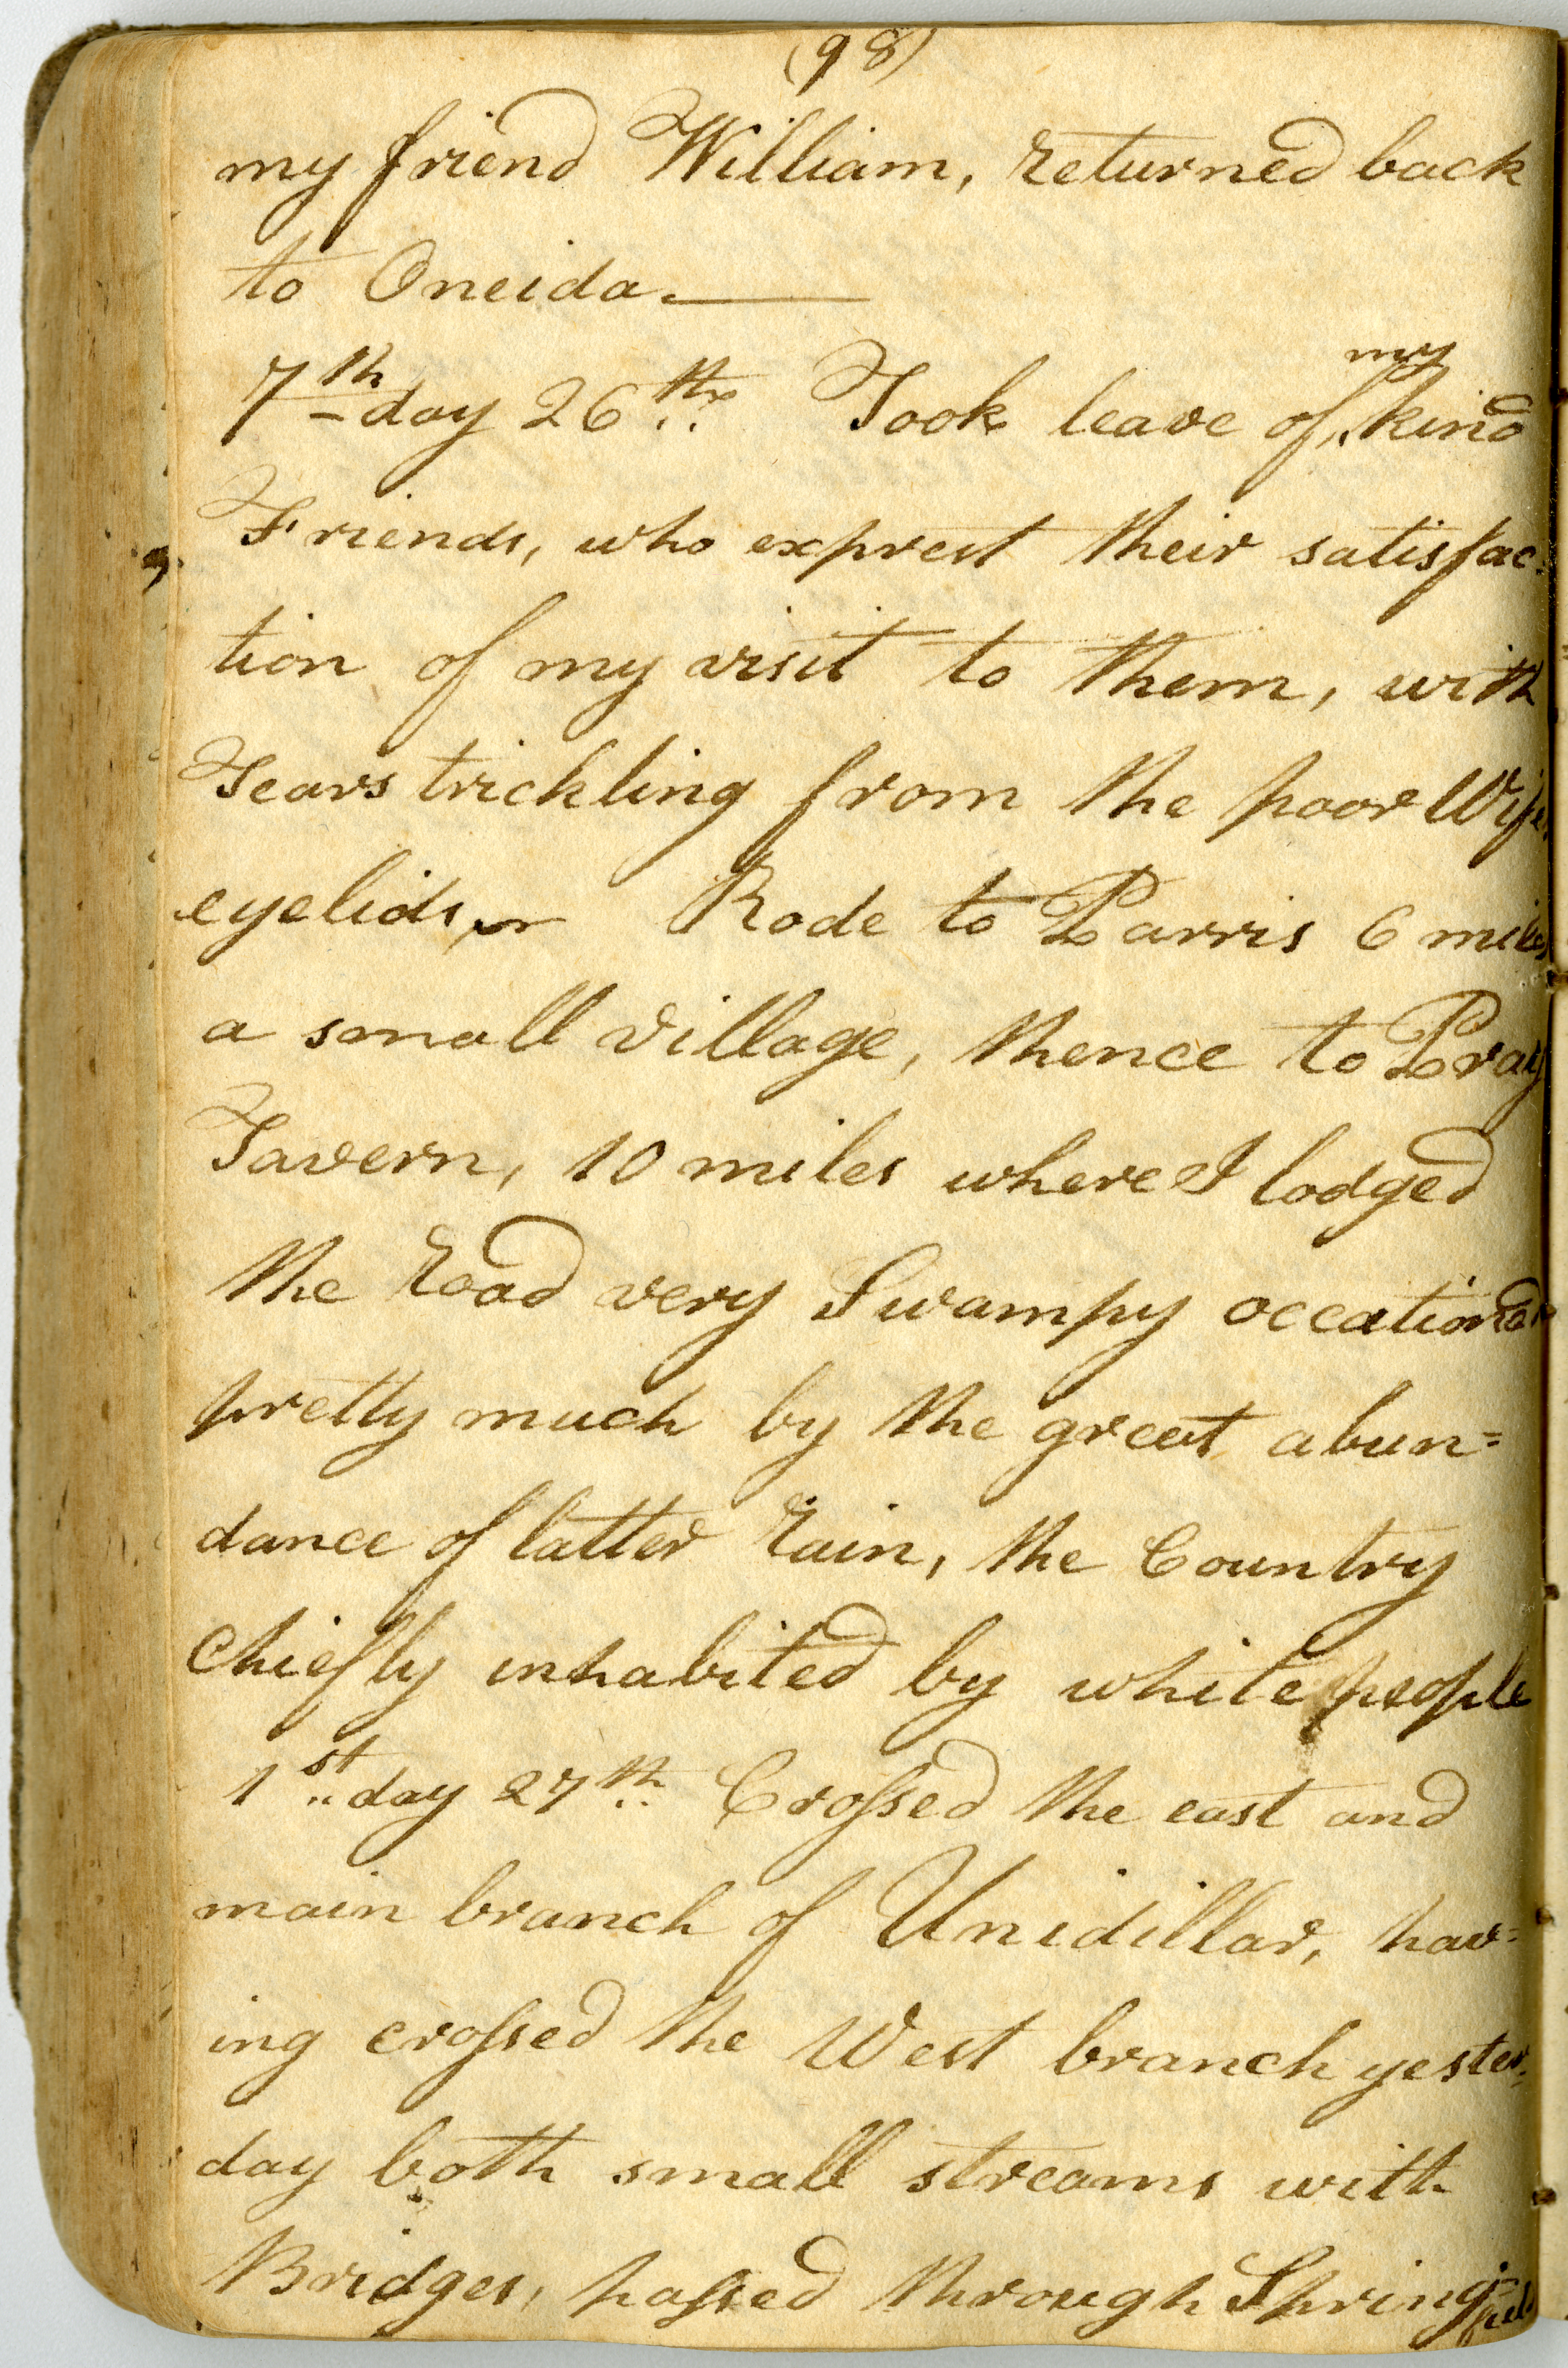 (98)
my friend William, returned back
to Oneida.
7th day 26th. Took leave of my kind
Friends, who exprest their satisfac-
tion of my visit to them, with
Tears trickling from the poor Wife
eyelids, Rode to Parris 6 miles
a small village, thence to Pray
Tavern, 10 miles where I lodged
the road very Swampy occationed
pretty much by the great abun=
dance of latter rain, the Country
Chiefly inhabited by white people
1st day 27th. Crossed the east and
main branch of Unidillar, hav=
ing crossed the West branch yester-
day both small streams with
Bridges, passed through Spring=field